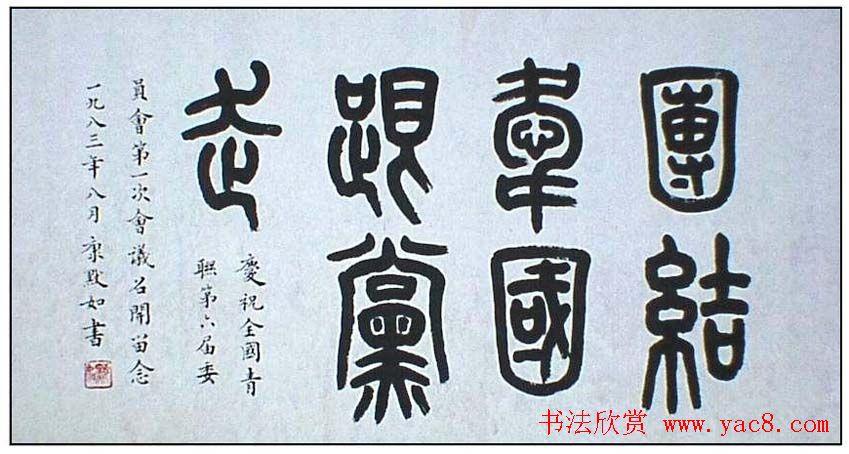 團結
國
跟黨
走
慶祝全國青
聯第六屆委
員會第一次會議召開留念
一九八三年八月 康默如書
书法欣赏 www.yac8.com